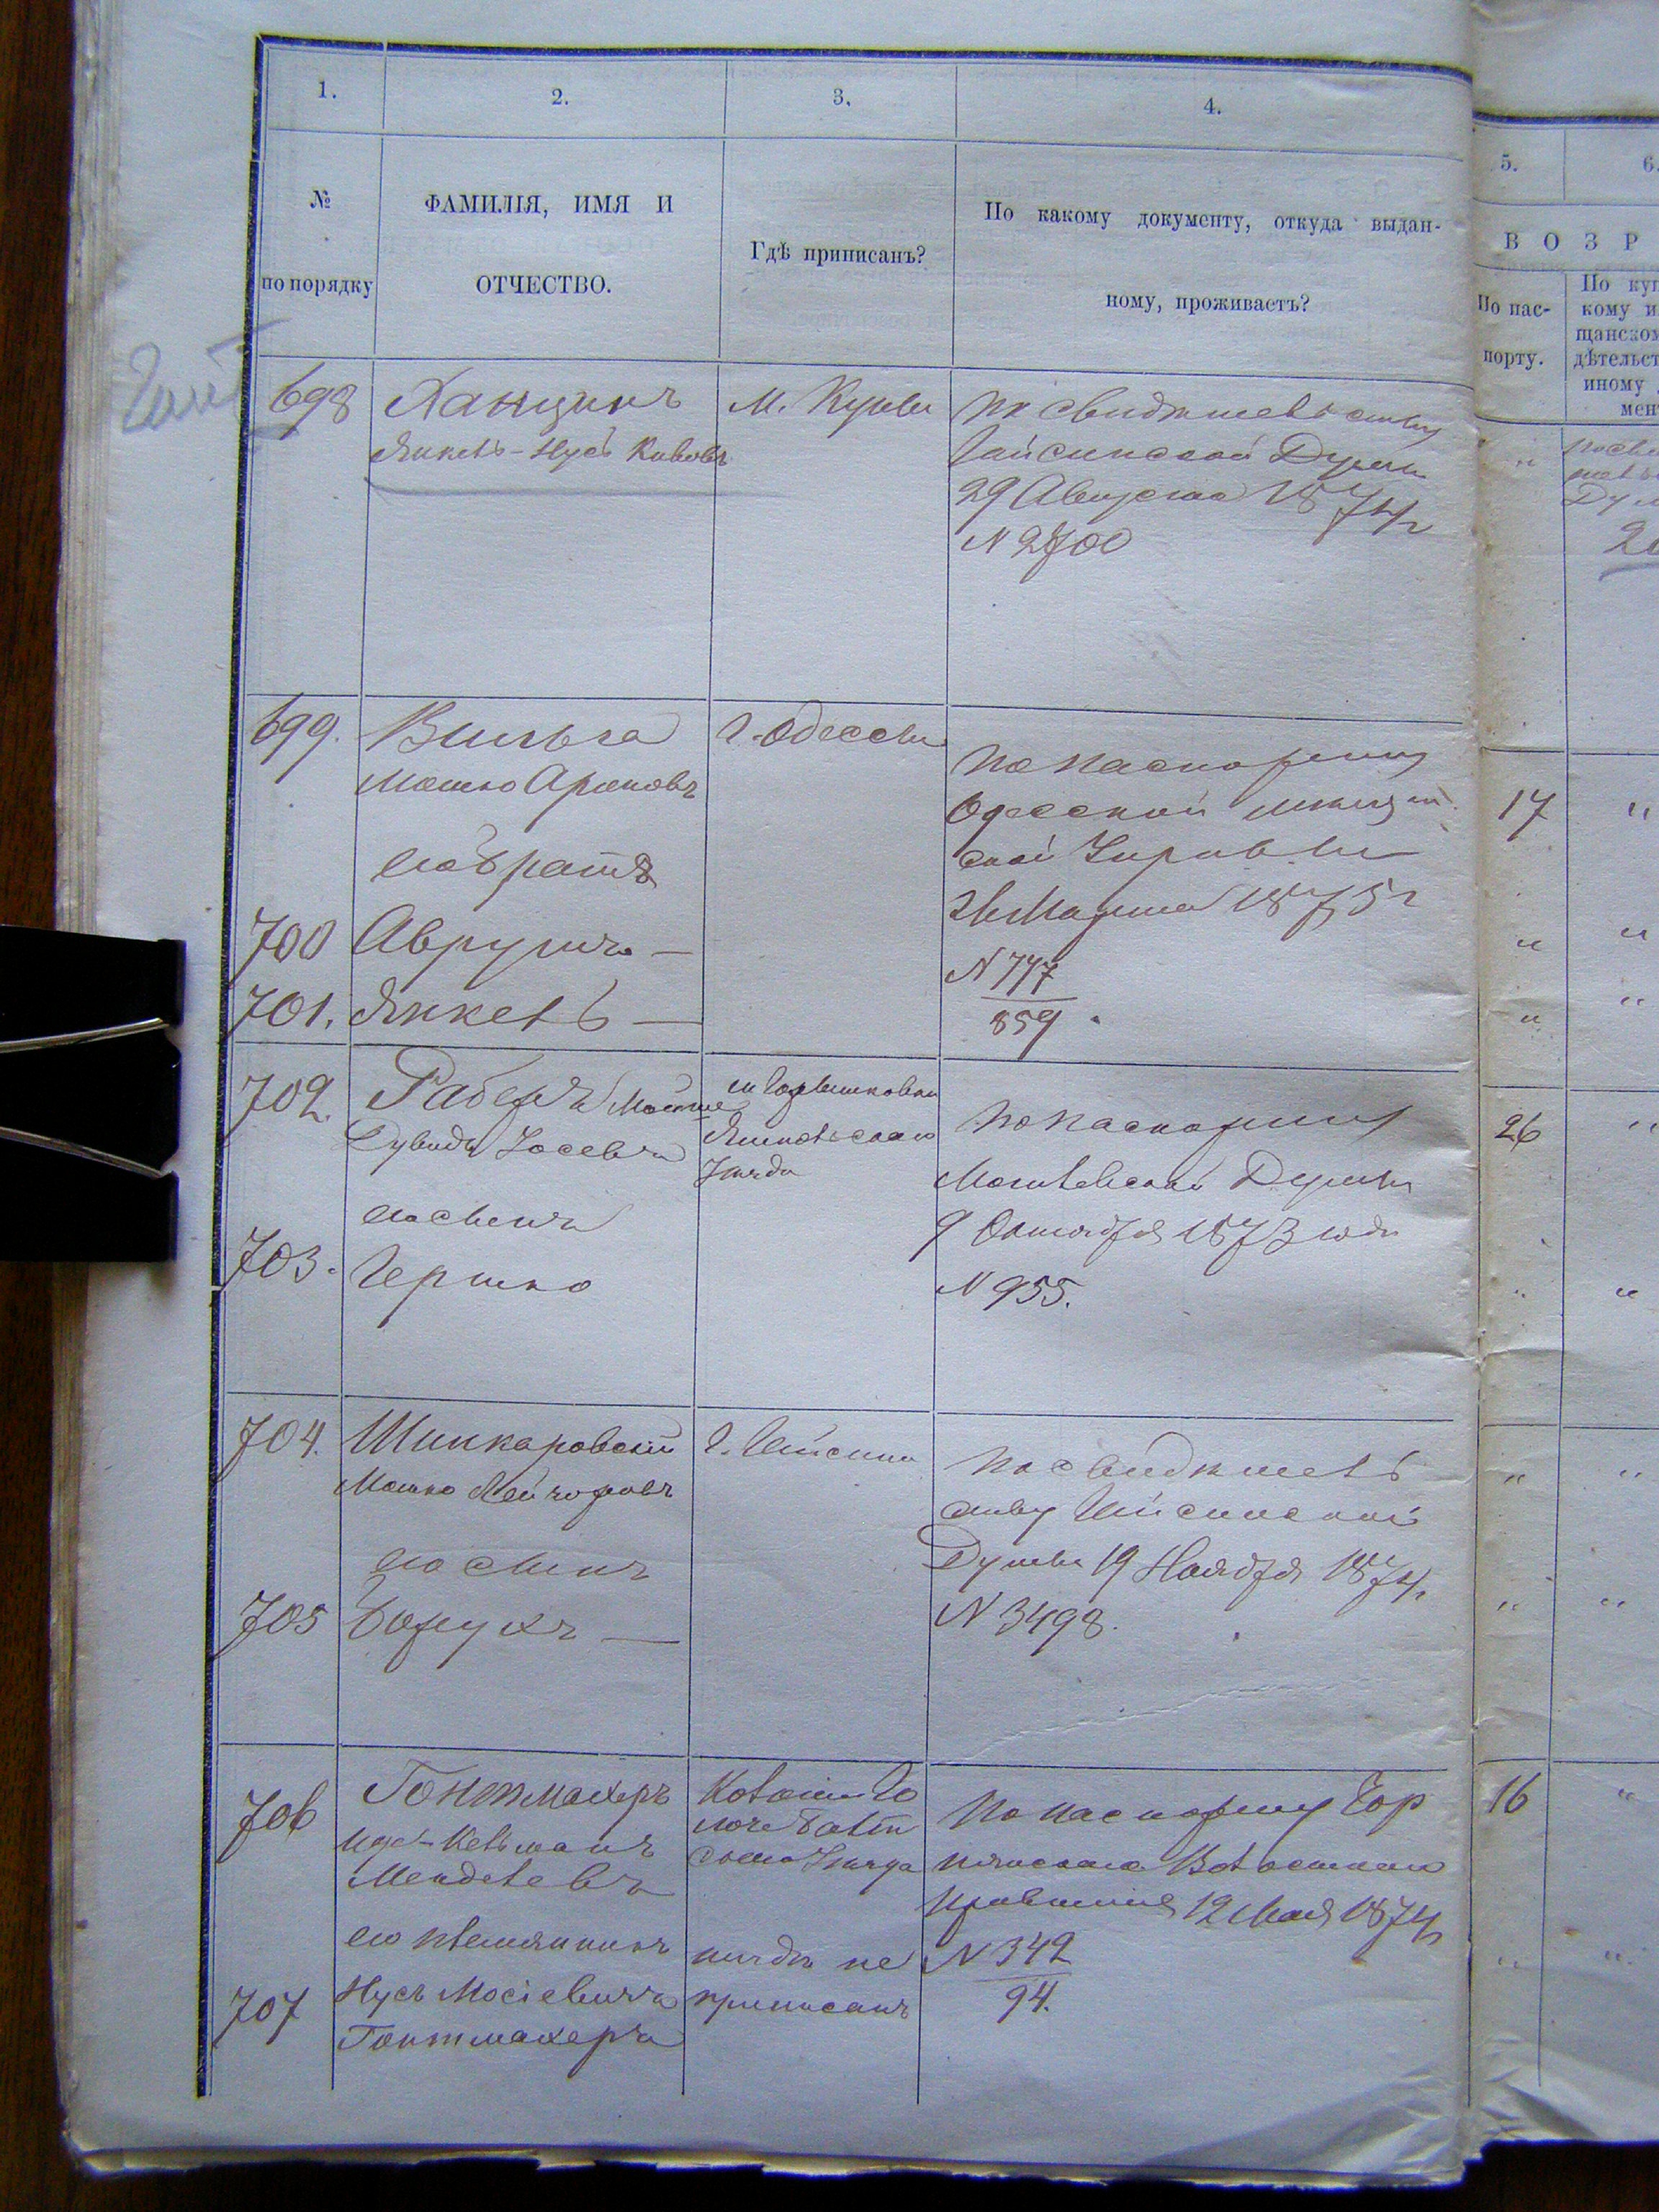 1.
2.
3.
4.
5.
6.
№
по порядку
ФАМИЛІЯ, ИМЯ И
ОТЧЕСТВО.
Гдѣ приписанъ?
По какому документу, откуда выдан-
ному, проживаетъ?
В О З Р
По пас-
порту.
По куп
кому и
щанском
дѣтельст
иному
мен
698
Ханцинъ
Янкель-Нусь
М.
по свидѣтельству
Гайсинской Думы
29 Августа 1874 г
N 2700
"
699.
Мошко Ароновъ
г. Одессы
по паспорту
Одесской мѣщан
ской Управы
Марта 1875 г
N 747
859
17
"
его братъ
700
Аврумъ —
"
"
701.
Янкель —
"
"
702.
Мошко
Дувидъ Іосевъ
Уѣзда
по паспорту
Могилевской Думы
9 Октября 1873 года
N 955.
26
"
его сынъ
703.
Гершко
"
"
704.
Шинкаровскій
Мошко
г. Гайсина
по свидѣтель
ству Гайсинской
Думы 19 Ноября 1874 г
N 3498.
"
"
его сынъ
705
Борухъ —
"
"
706
Гонтмахеръ
Кельманъ
Менделевъ
Уѣзда
по паспорту Гор
Волостного
правленія 12 Мая 1874 г
N 342
94.
16
"
его племянникъ
707
Нусъ Мосіевичъ
Гонтмахеръ
нигдѣ не
приписанъ
"
"